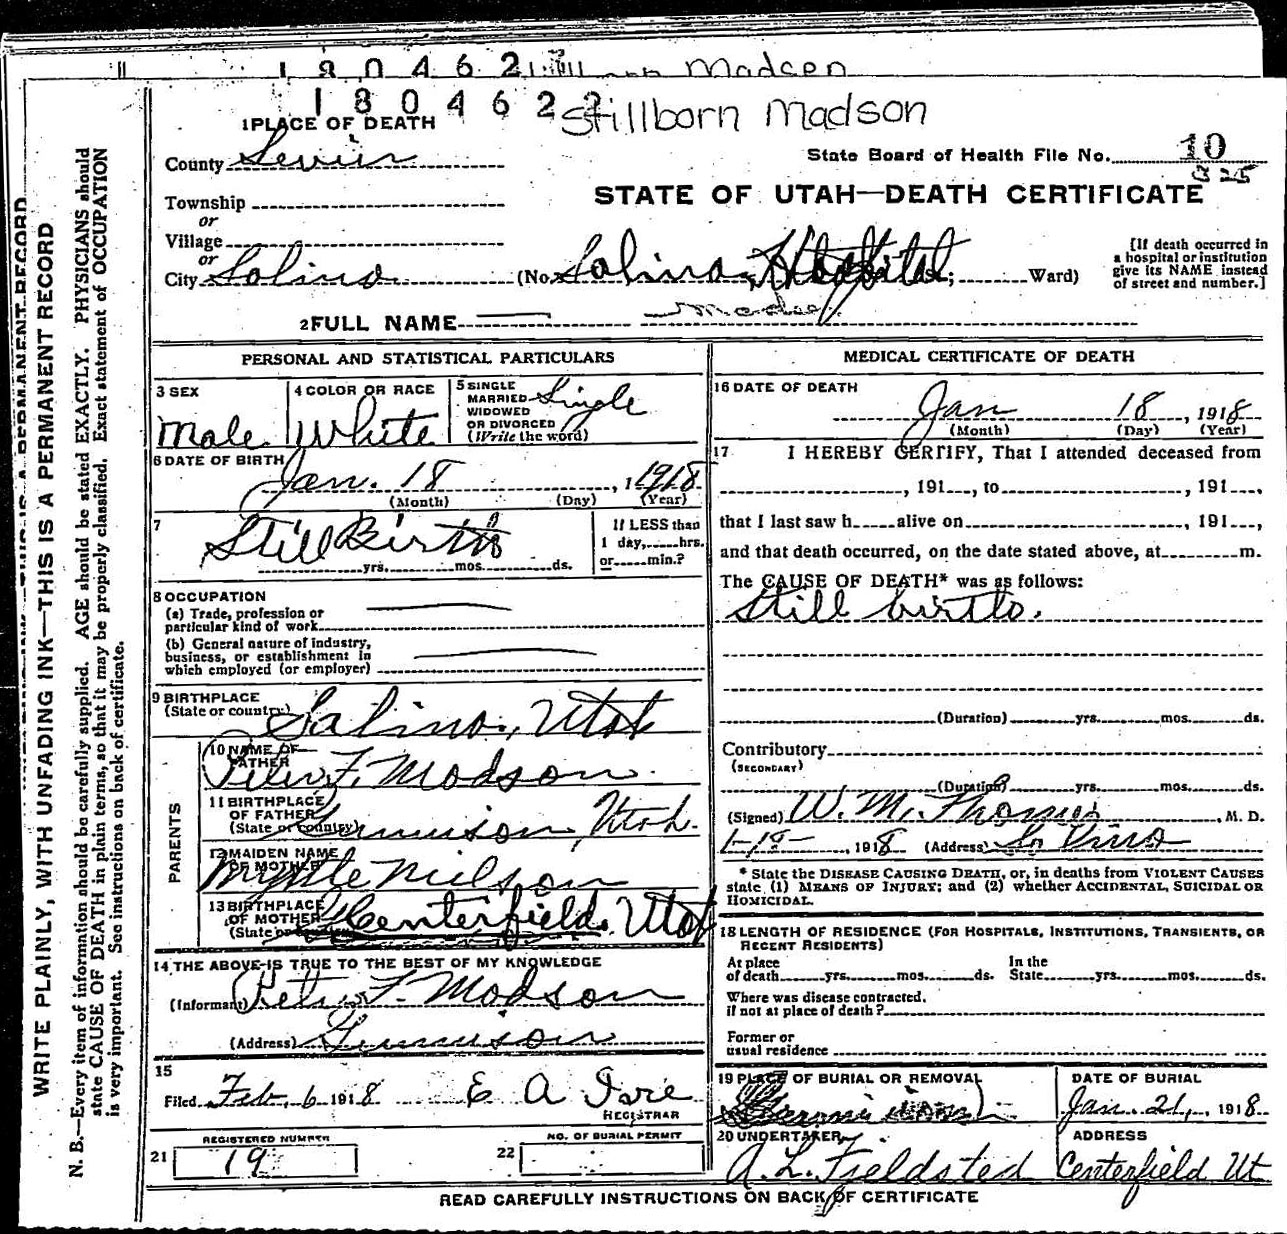 1 8 0 4 6 2 Madsen
1 8 0 4 6 2 2 Stillborn Madson
1 PLACE OF DEATH
County Sevier
State Board of Health File No. 10
325
STATE OF UTAH—DEATH CERTIFICATE
Township
or
Village
or
City Salina (No. Salina, Hospital St.; Ward)
[If death occurred in
a hospital or institution
give its NAME instead
of street and number.]
2 FULL NAME Madsen
PERSONAL AND STATISTICAL PARTICULARS
3 SEX
Male
4 COLOR OR RACE
White
5 SINGLE
MARRIED
WIDOWED
OR DIVORCED
(Write the word)
Single
6 DATE OF BIRTH
Jan. 18, 1918
(Month) (Day) (Year)
7
Still Birth
yrs. mos. ds.
If LESS than
1 day, hrs.
or min.?
8 OCCUPATION
(a) Trade, profession or
particular kind of work
(b) General nature of industry,
business, or establishment in
which employed (or employer)
9 BIRTHPLACE
(State or country) Salina, Utah
PARENTS
10 NAME OF
FATHER
Peter F. Madson
11 BIRTHPLACE
OF FATHER
(State or country) Gunnison, Utah.
12 MAIDEN NAME
OF MOTHER
Myrtle Nielson
13 BIRTHPLACE
OF MOTHER
(State or country) Centerfield, Utah
14 THE ABOVE IS TRUE TO THE BEST OF MY KNOWLEDGE
(Informant) Peter F. Madson
(Address) Gunnison
15
Filed Feb, 6 1918 E A Ivie
REGISTRAR
REGISTERED NUMBER
21 19
NO. OF BURIAL PERMIT
22
MEDICAL CERTIFICATE OF DEATH
16 DATE OF DEATH
Jan 18, 1918
(Month) (Day) (Year)
17 I HEREBY CERTIFY, That I attended deceased from
, 191 , to , 191 ,
that I last saw h alive on , 191 ,
and that death occurred, on the date stated above, at m.
The CAUSE OF DEATH* was as follows:
Still birth.
(Duration) yrs. mos. ds.
Contributory
(SECONDARY)
(Duration) yrs. mos. ds.
(Signed) W. M. Thomas, M. D.
, 1918 (Address) Salina
* State the DISEASE CAUSING DEATH, or, in deaths from VIOLENT CAUSES
state (1) MEANS OF INJURY; and (2) whether ACCIDENTAL, SUICIDAL OR
HOMICIDAL.
18 LENGTH OF RESIDENCE (FOR HOSPITALS, INSTITUTIONS, TRANSIENTS, OR
RECENT RESIDENTS)
At place In the
of death yrs. mos. ds. State yrs. mos. ds.
Where was disease contracted,
if not at place of death?
Former or
usual residence
19 PLACE OF BURIAL OR REMOVAL
Gunnison
DATE OF BURIAL
Jan. 21, 1918
20 UNDERTAKER
A. L. Fieldsted
ADDRESS
Centerfield Ut
READ CAREFULLY INSTRUCTIONS ON BACK OF CERTIFICATE
WRITE PLAINLY, WITH UNFADING INK—THIS IS A PERMANENT RECORD
N. B.—Every item of information should be carefully supplied. AGE should be stated EXACTLY. PHYSICIANS should
state CAUSE OF DEATH in plain terms, so that it may be properly classified. Exact statement of OCCUPATION
is very important. See instructions on back of certificate.